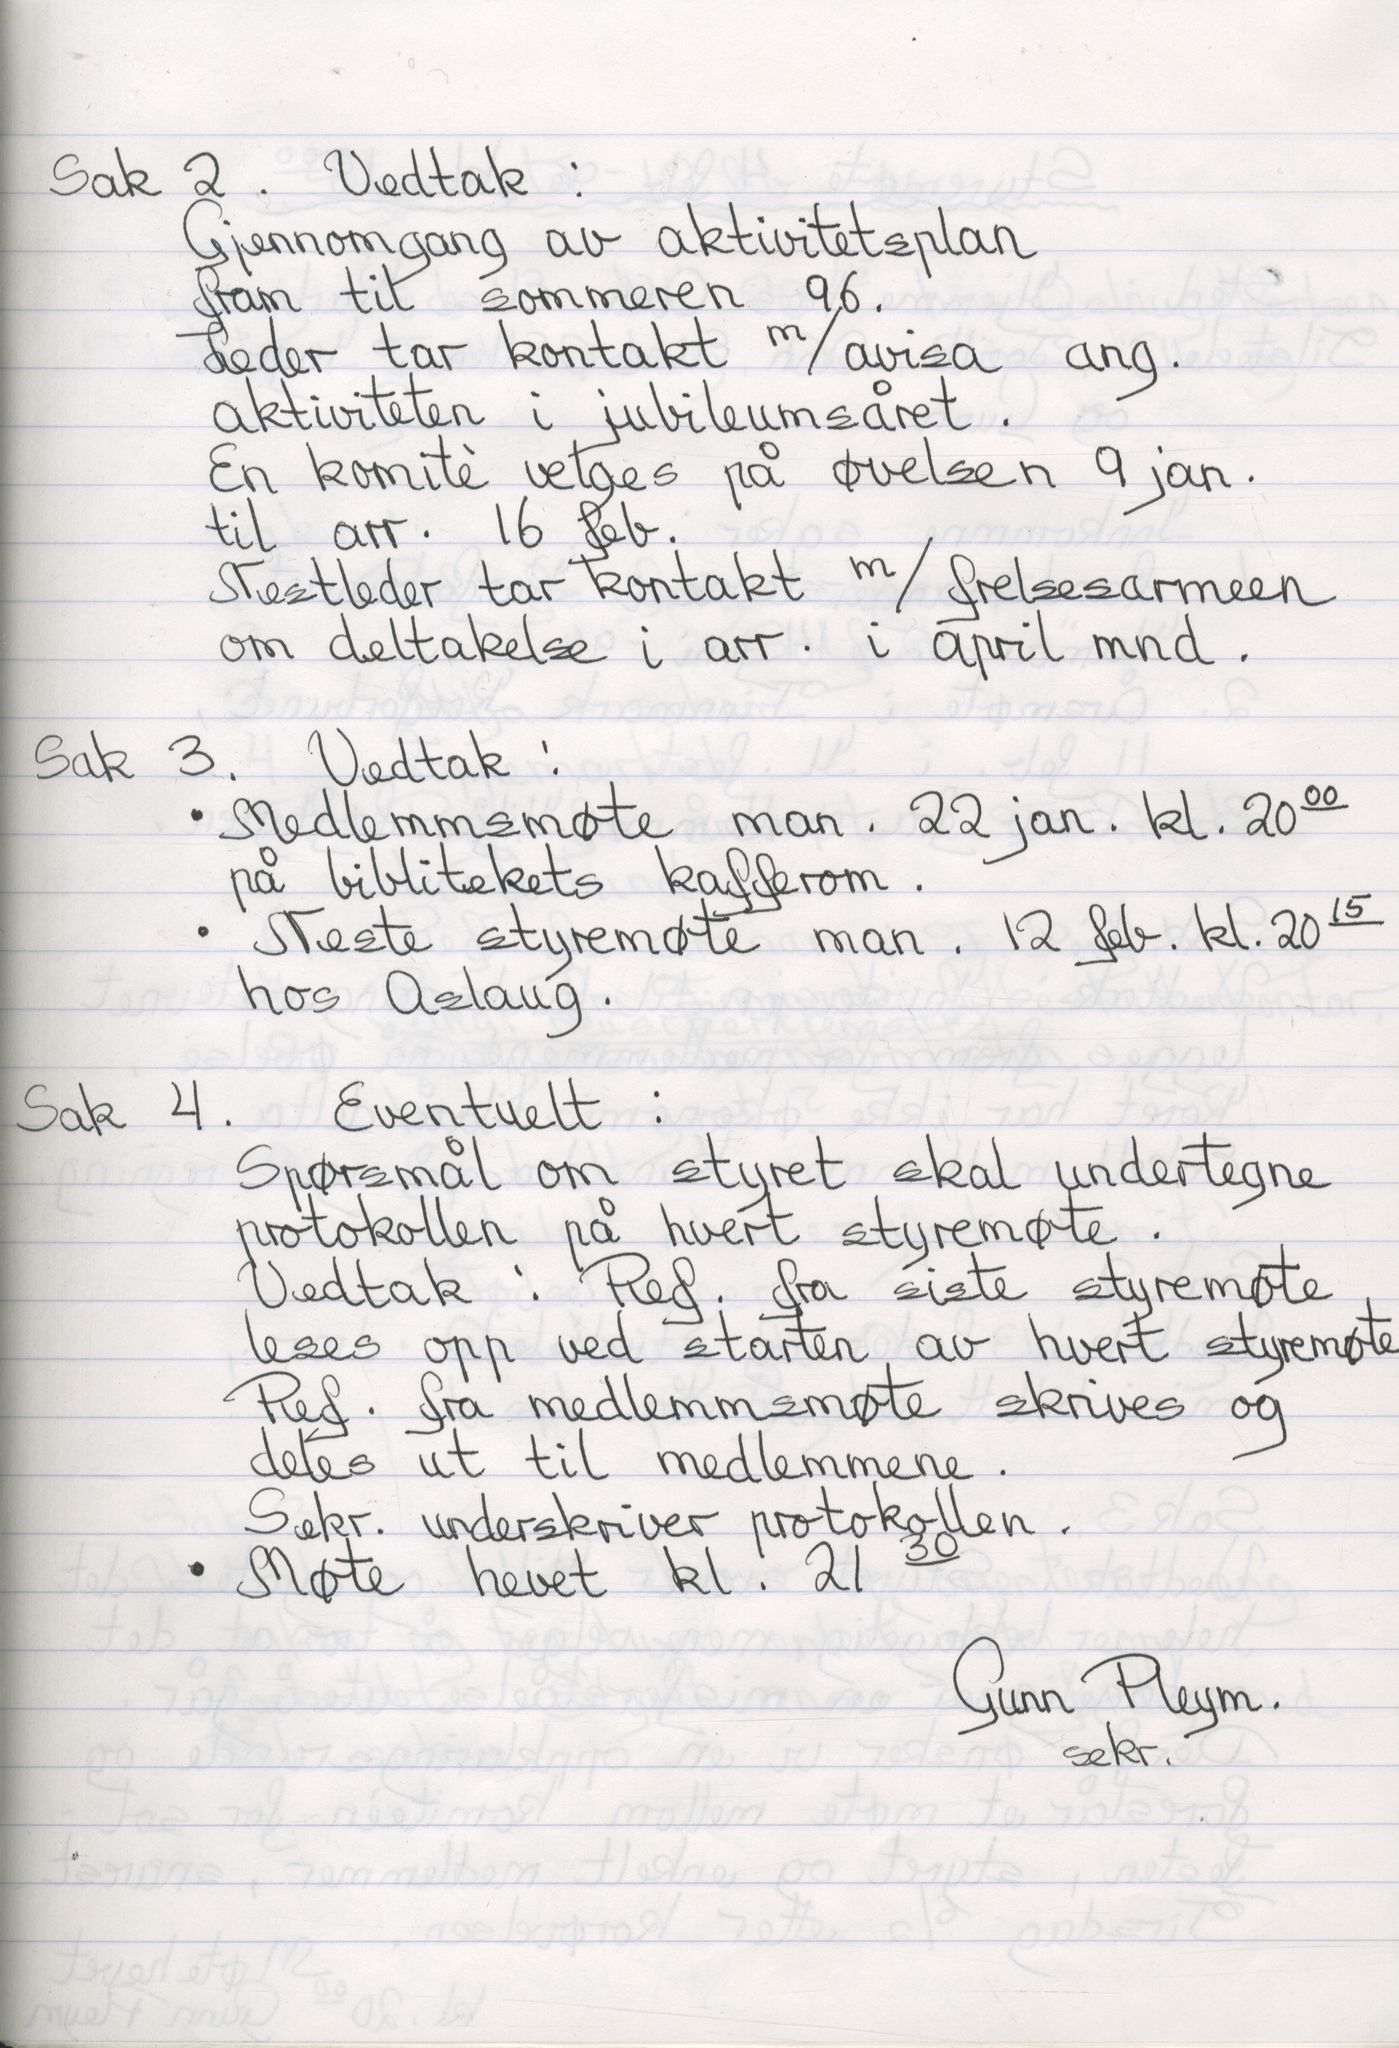 Sak 2. Vedtak :
Gjennomgang av aktivitetsplan
fram til sommeren 96.
Leder tar kontakt m/avisa ang.
aktiviteten i jubileumsåret.
En komitè velges på øvelsen 9 jan.
til arr. 16 feb.
Nestleder tar kontakt m/ frelsesarmeen
om deltakelse i arr. i april mnd.
Sak 3. Vedtak :
• Medlemmsmøte man. 22 jan. kl. 20⁰⁰
på biblitekets kafferom.
• Neste styremøte man. 12 feb. kl. 20¹⁵
hos Aslaug.
Sak 4. Eventuelt :
Spørsmål om styret skal undertegne
protokollen på hvert styremøte.
Vedtak : Ref. fra siste styremøte
leses opp ved starten av hvert styremøte
Ref. fra medlemmsmøte skrives og
deles ut til medlemmene.
Sekr. underskriver protokollen.
• Møte hevet kl. 21³⁰
Gunn Pleym.
sekr.